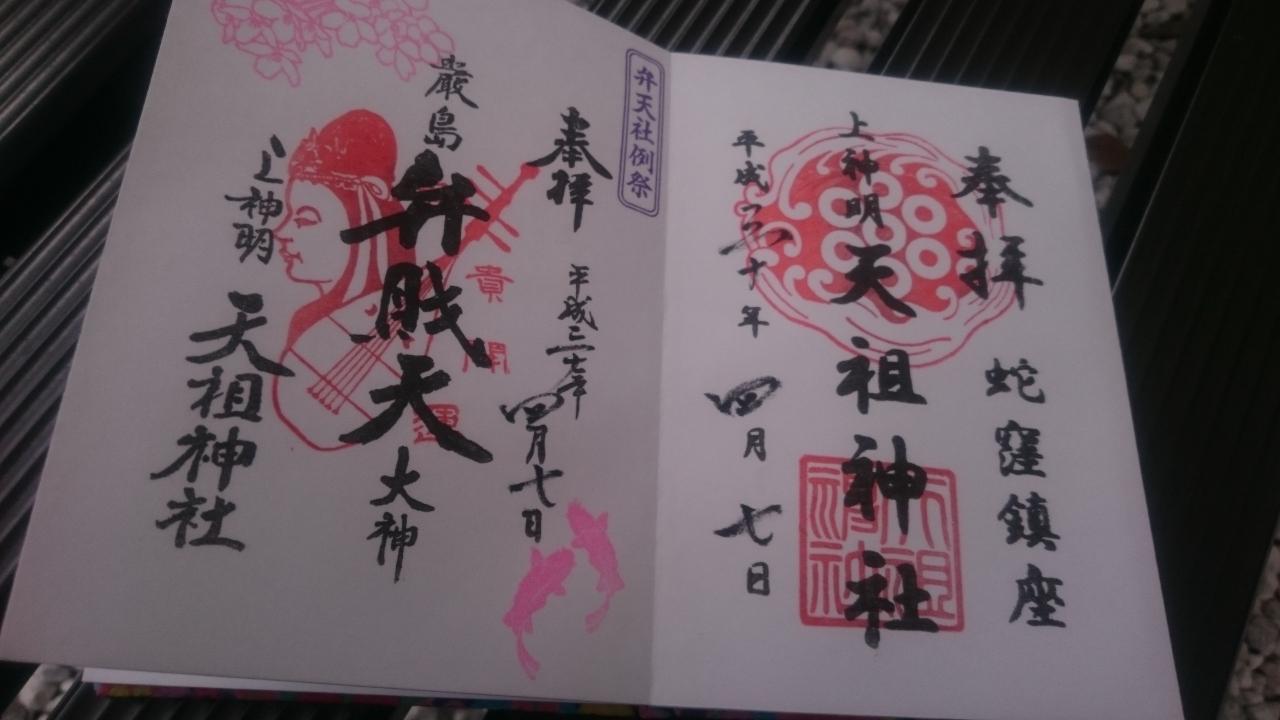 奉拝
蛇窪鎮座
上神明天祖神社
天祖神社
平成三十年四月七日
弁天社例祭
奉拝
四月七日
嚴島弁財天大神
開運
上神明天祖神社